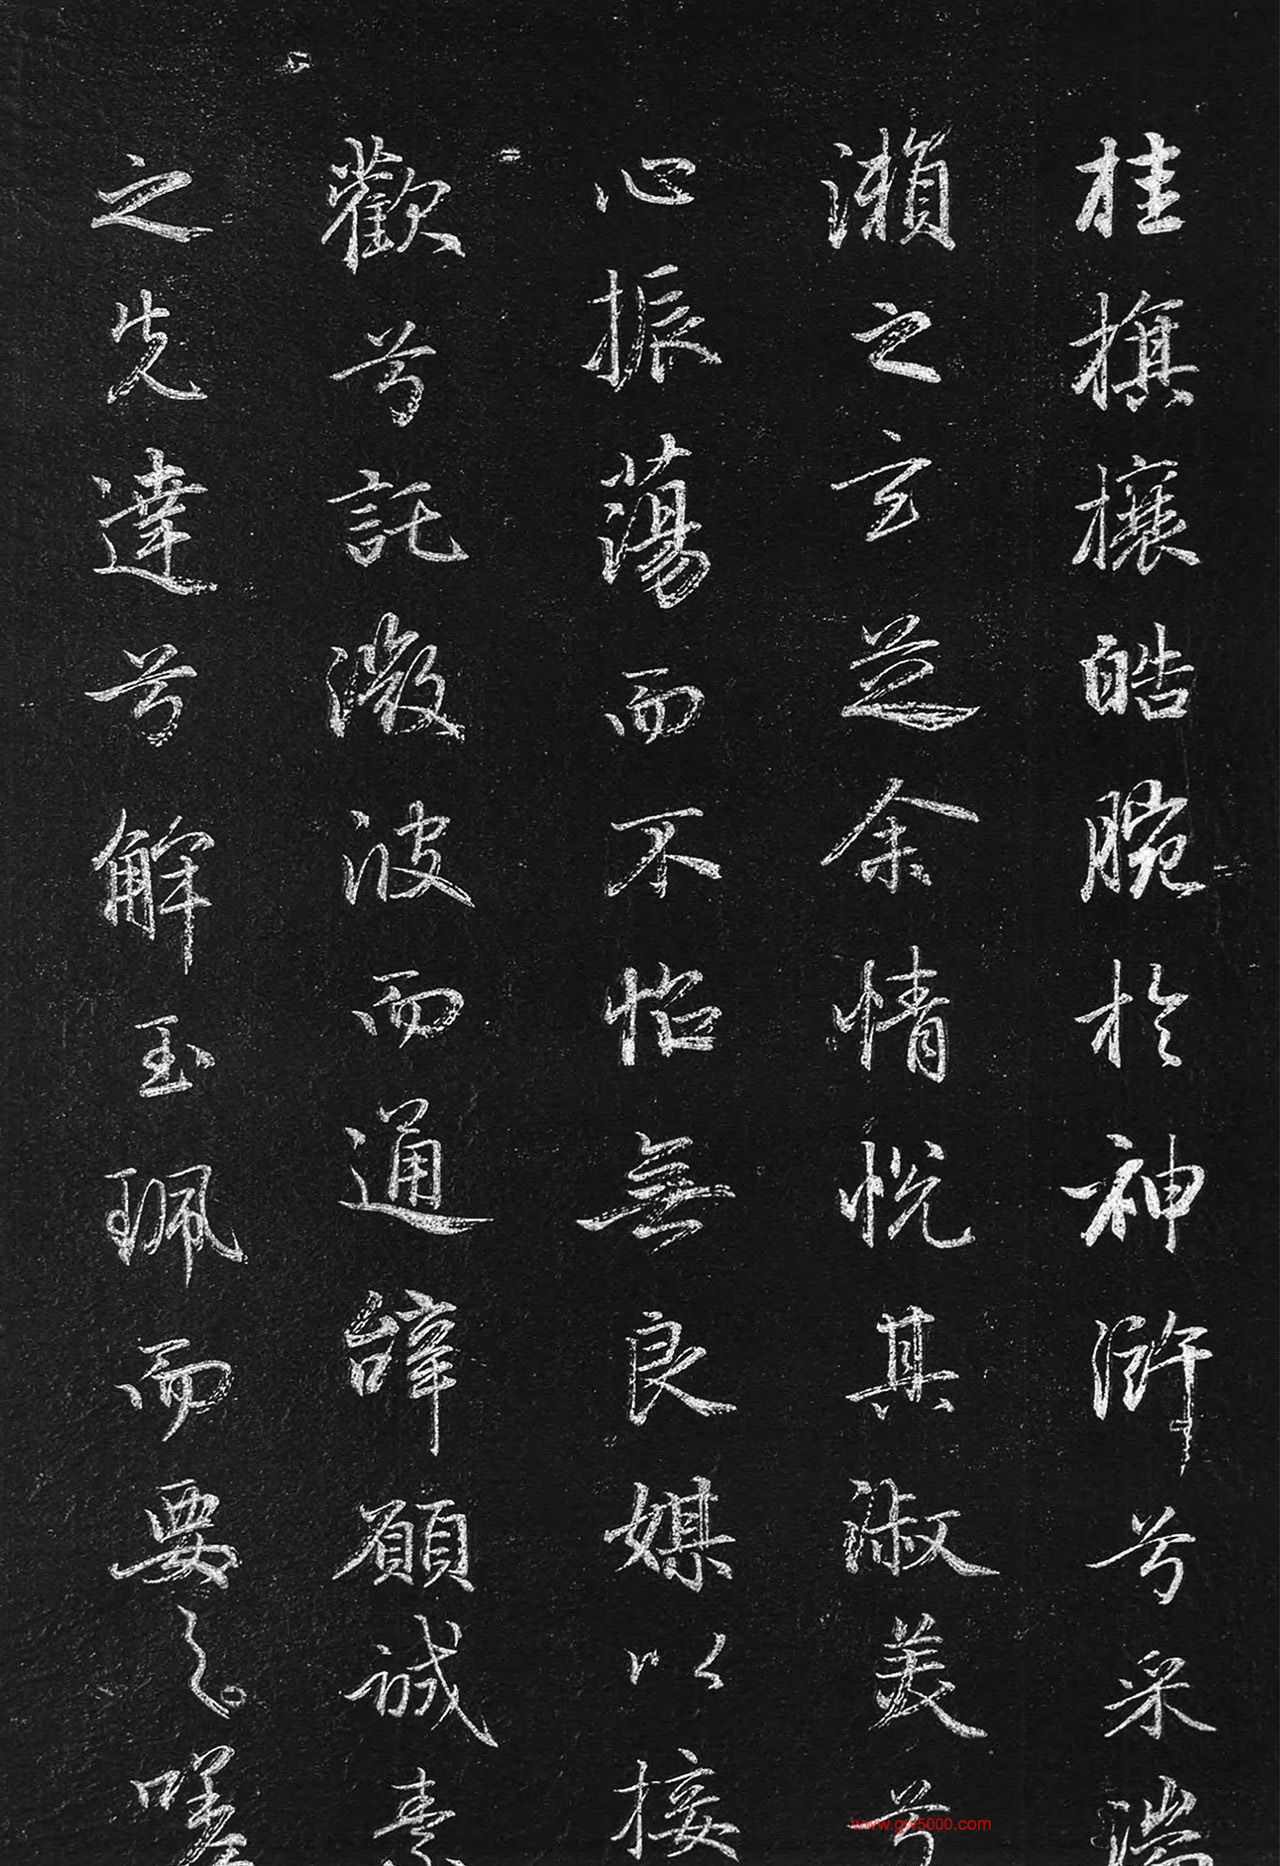 桂旗攘皓腕於神滸兮采湍
瀨之玄芝余情悅其淑美兮
心振蕩而不怡無良媒以接
歡兮託微波而通辭願誠素
之先達兮解玉珮而要之嗟
www.gw5000.com